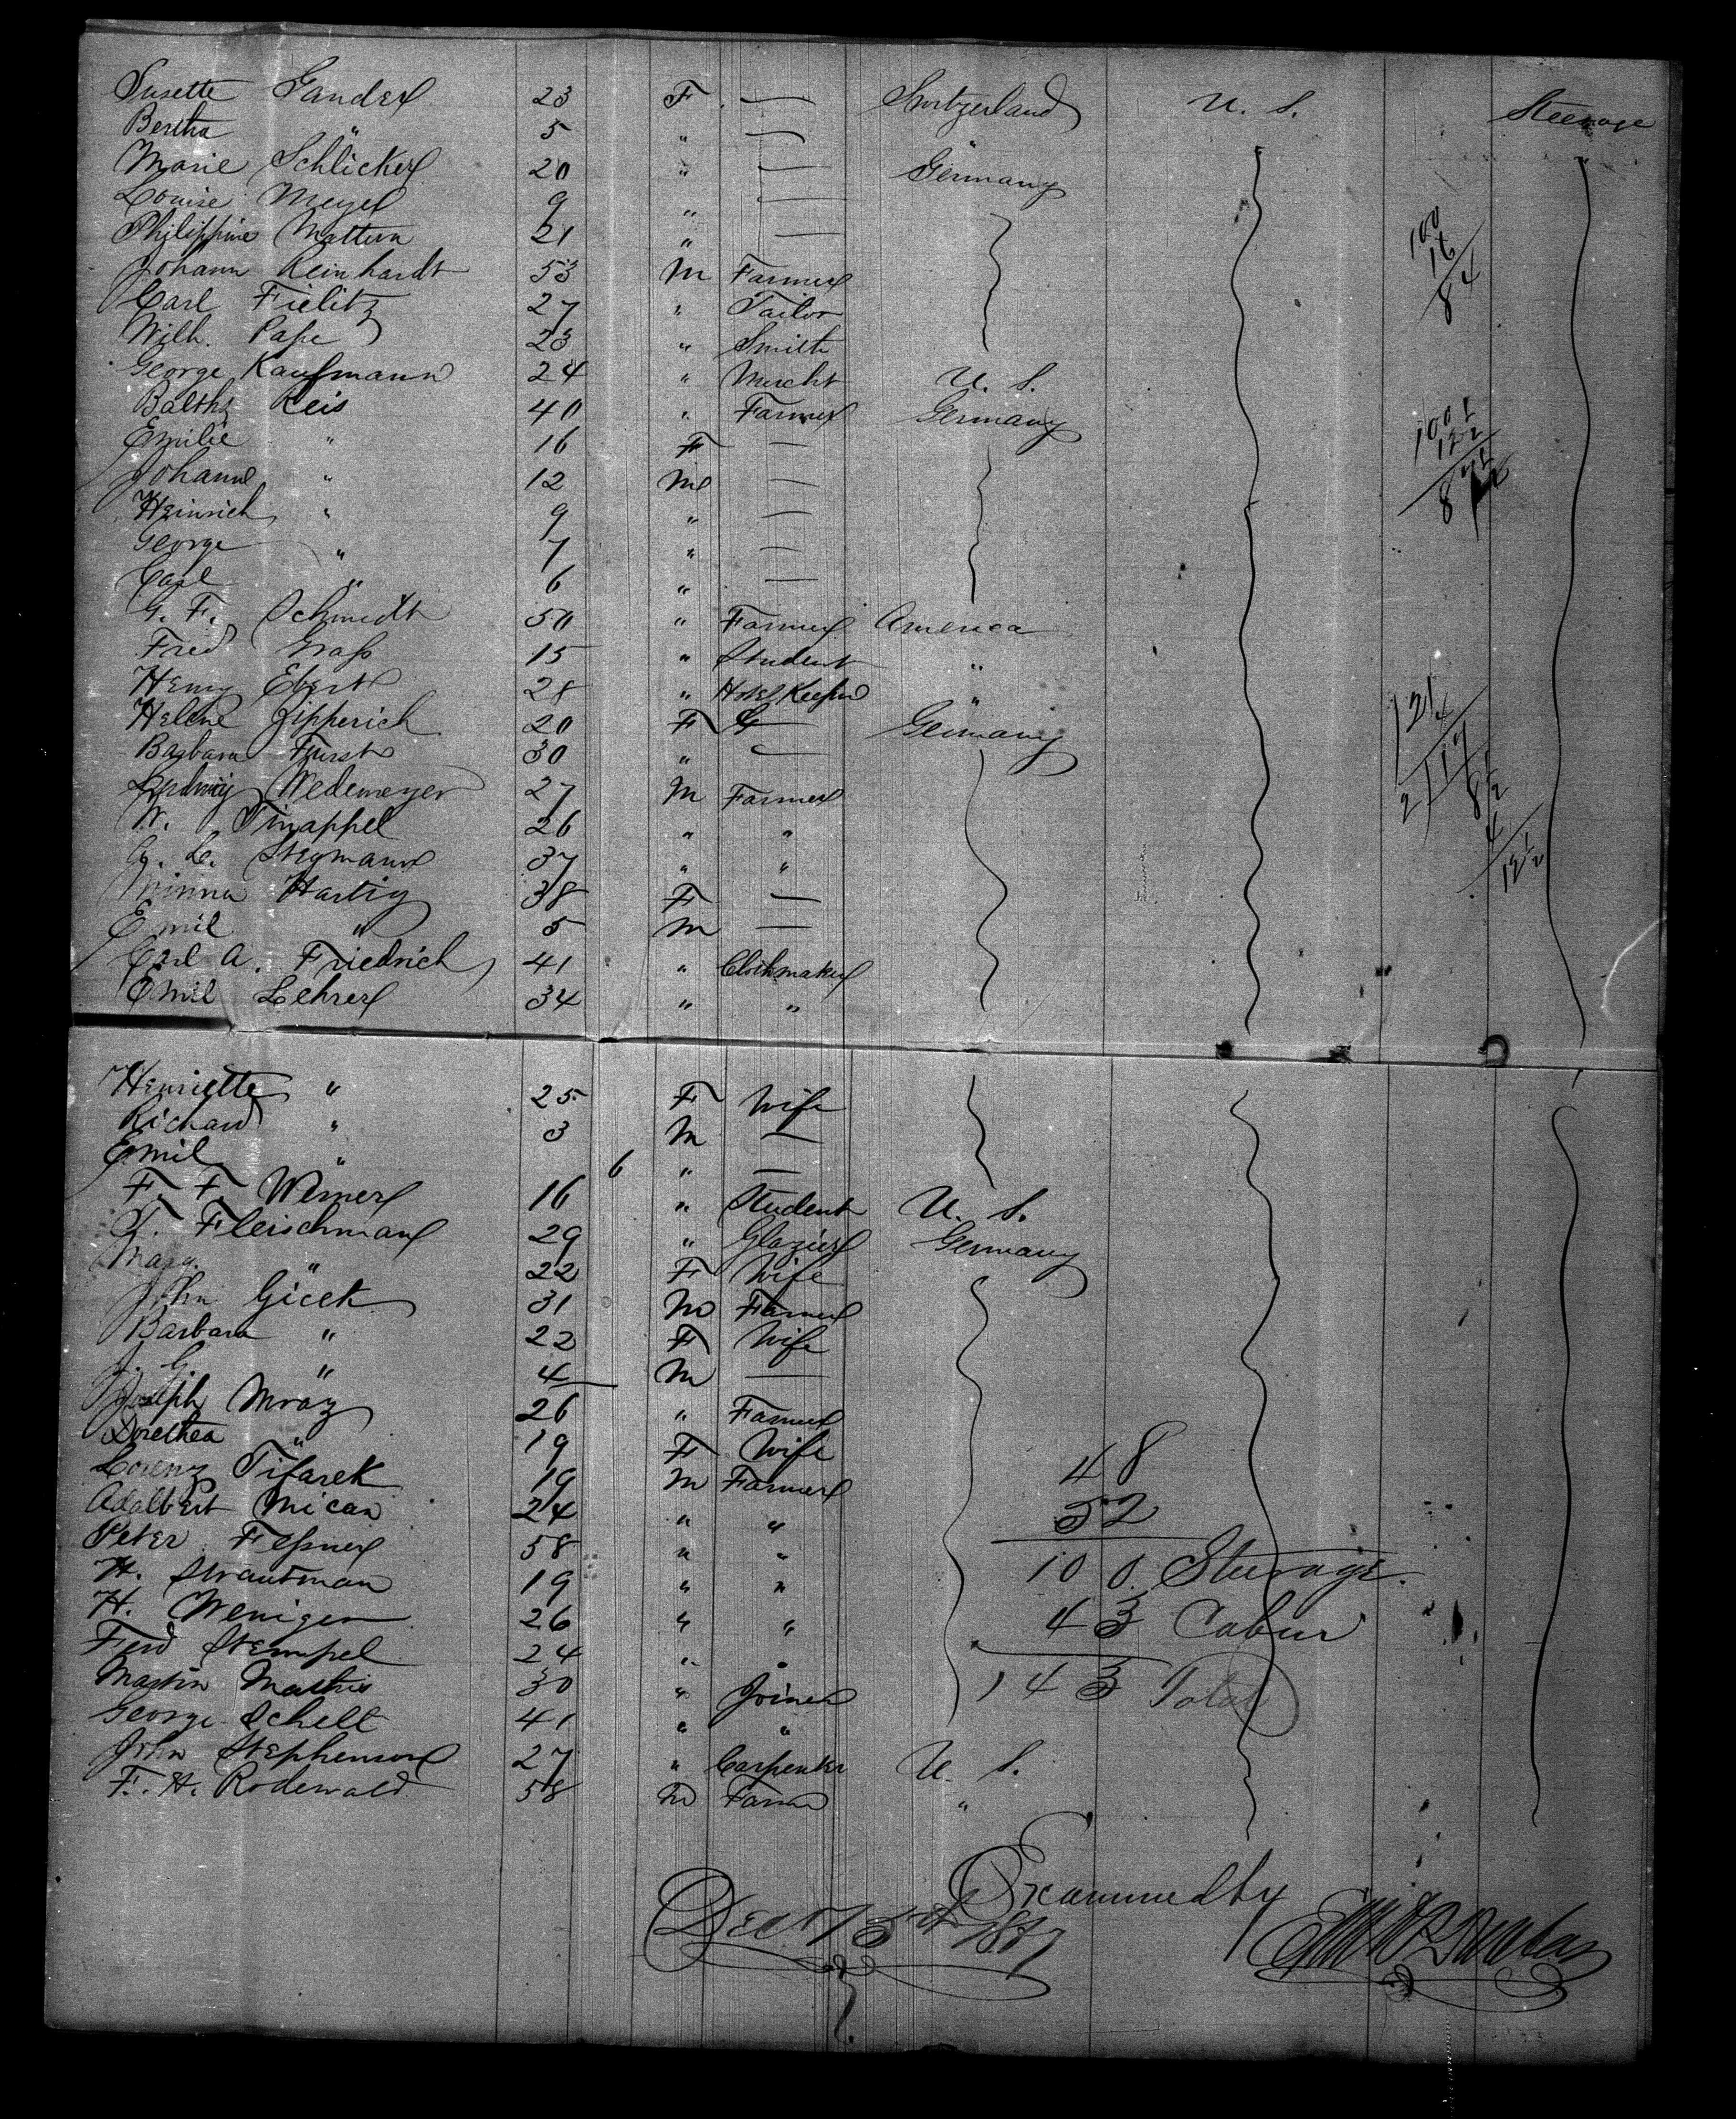 Susette Gander 23 F — Switzerland U. S. Steerage
Bertha " 5 " —
Marie Schlicker 20 " — Germany
Louise Meyer 9 " —
Philippine Mattern 21 " —
Johann Reinhardt 53 M Farmer
Carl Fielitz 27 " Tailor
Wilh. Pape 23 " Smith
George Kaufmann 24 " Mercht U. S.
Balthz Reis 40 " Farmer Germany
Emilie " 16 F —
Johann " 12 M —
Heinrich " 9 " —
George " 7 " —
Carl " 6 " —
G. F. Schmidt 50 " Farmer America
Fred Grass 15 " Student "
Henry Ebert 28 " Hotel Keeper "
Helene Zipperich 20 F — Germany
Barbara Furst 30 " —
Ludwig Wedemeyer 27 M Farmer
W. Tinappel 26 " "
G. L. Stegmann 37 " "
Minna Hartig 38 F —
Emil " 5 M —
Carl A. Friedrich 41 " Clockmaker
Emil Lehrer 34 " "
Henriette " 25 F Wife
Richard " 3 M —
Emil " 6 " —
F. F. Werner 16 " Student U. S.
T. Fleischman 29 " Glazier Germany
Marg. " 22 F Wife
John Gicek 31 M Farmer
Barbara " 22 F Wife
J. G. " 4 M —
Joseph Mraz 26 " Farmer
Dorethea " 19 F Wife
Lorenz Tifarek 19 M Farmer
Adalbert Mican 24 " "
Peter Feßner 58 " "
H. Strautman 19 " "
H. Weniger 26 " "
Ferd Stempel 24 " "
Martin Mathis 30 " Joiner
George Schelt 41 " "
John Stephenson 27 " Carpenter U. S.
F. H. Rodewald 58 M Farmer "
100
16
84
100
12½
87½
48
52
100 Steerage
43 Cabin
143 Total
Examined by
Dec 15th 1877